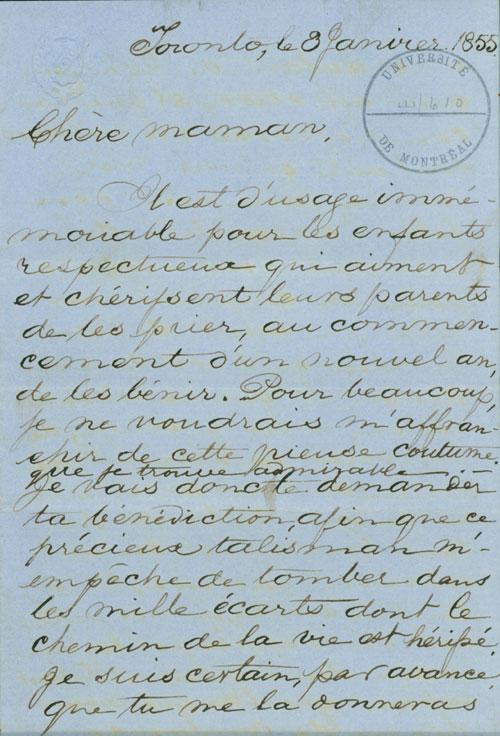 Toronto, le 8 Janvier 1855
UNIVERSITÉ
DE MONTRÉAL
Chère maman,
Il est d'usage immé-
moriable pour les enfants
respectueux qui aiment
et chérissent leurs parents
de les prier, au commen-
cement d'un nouvel an,
de les bénir. Pour beaucoup,
je ne voudrais m'affran-
chir de cette pieuse coutume
que je trouve admirable
Je vais donc te demander
ta bénédiction, afin que ce
précieux talisman m'-
empêche de tomber dans
les mille écarts dont le
chemin de la vie est hérissé.
Je suis certain, par avance,
que tu me la donneras